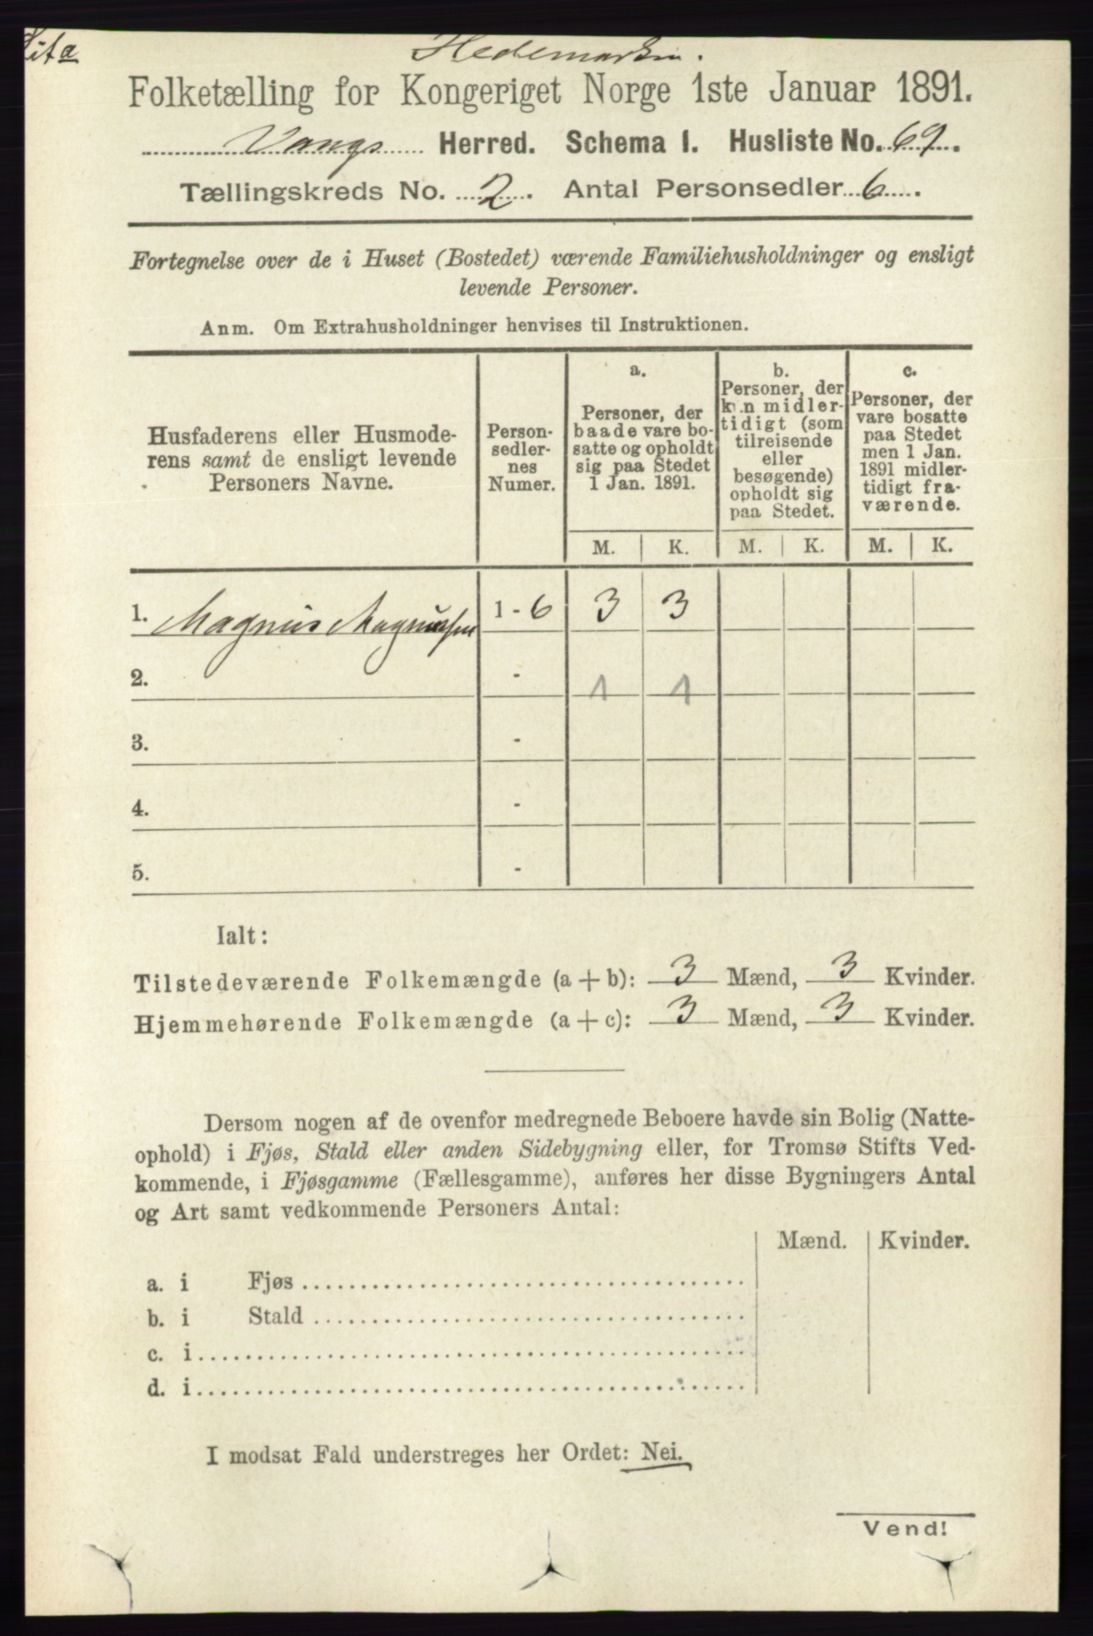 Lit a
Hedemarken.
Folketælling for Kongeriget Norge 1ste Januar 1891.
Vangs Herred. Schema I. Husliste No. 69.
Tællingskreds No. 2. Antal Personsedler 6.
Fortegnelse over de i Huset (Bostedet) værende Familiehusholdninger og ensligt
levende Personer.
Anm. Om Extrahusholdninger henvises til Instruktionen.
Husfaderens eller Husmode-
rens samt de ensligt levende
Personers Navne.
Person-
sedler-
nes
Numer.
a.
Personer, der
baade vare bo-
satte og opholdt
sig paa Stedet
1 Jan. 1891.
b.
Personer, der
kun midler-
tidigt (som
tilreisende
eller
besøgende)
opholdt sig
paa Stedet.
c.
Personer, der
vare bosatte
paa Stedet
men 1 Jan.
1891 midler-
tidigt fra-
værende.
M. K. M. K. M. K.
1. Magnus Magnussen 1 - 6 3 3
2. - 1 1
3. -
4. -
5. -
Ialt:
Tilstedeværende Folkemængde (a + b): 3 Mænd, 3 Kvinder.
Hjemmehørende Folkemængde (a + c): 3 Mænd, 3 Kvinder.
Dersom nogen af de ovenfor medregnede Beboere havde sin Bolig (Natte-
ophold) i Fjøs, Stald eller anden Sidebygning eller, for Tromsø Stifts Ved-
kommende, i Fjøsgamme (Fællesgamme), anføres her disse Bygningers Antal
og Art samt vedkommende Personers Antal:
Mænd. Kvinder.
a. i Fjøs
b. i Stald
c. i
d. i
I modsat Fald understreges her Ordet: Nei.
Vend!